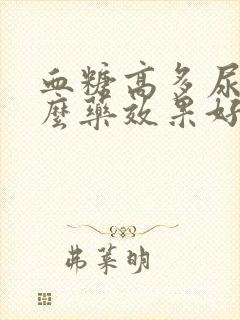 血糖高多尿
麼藥效果好
弗莱明